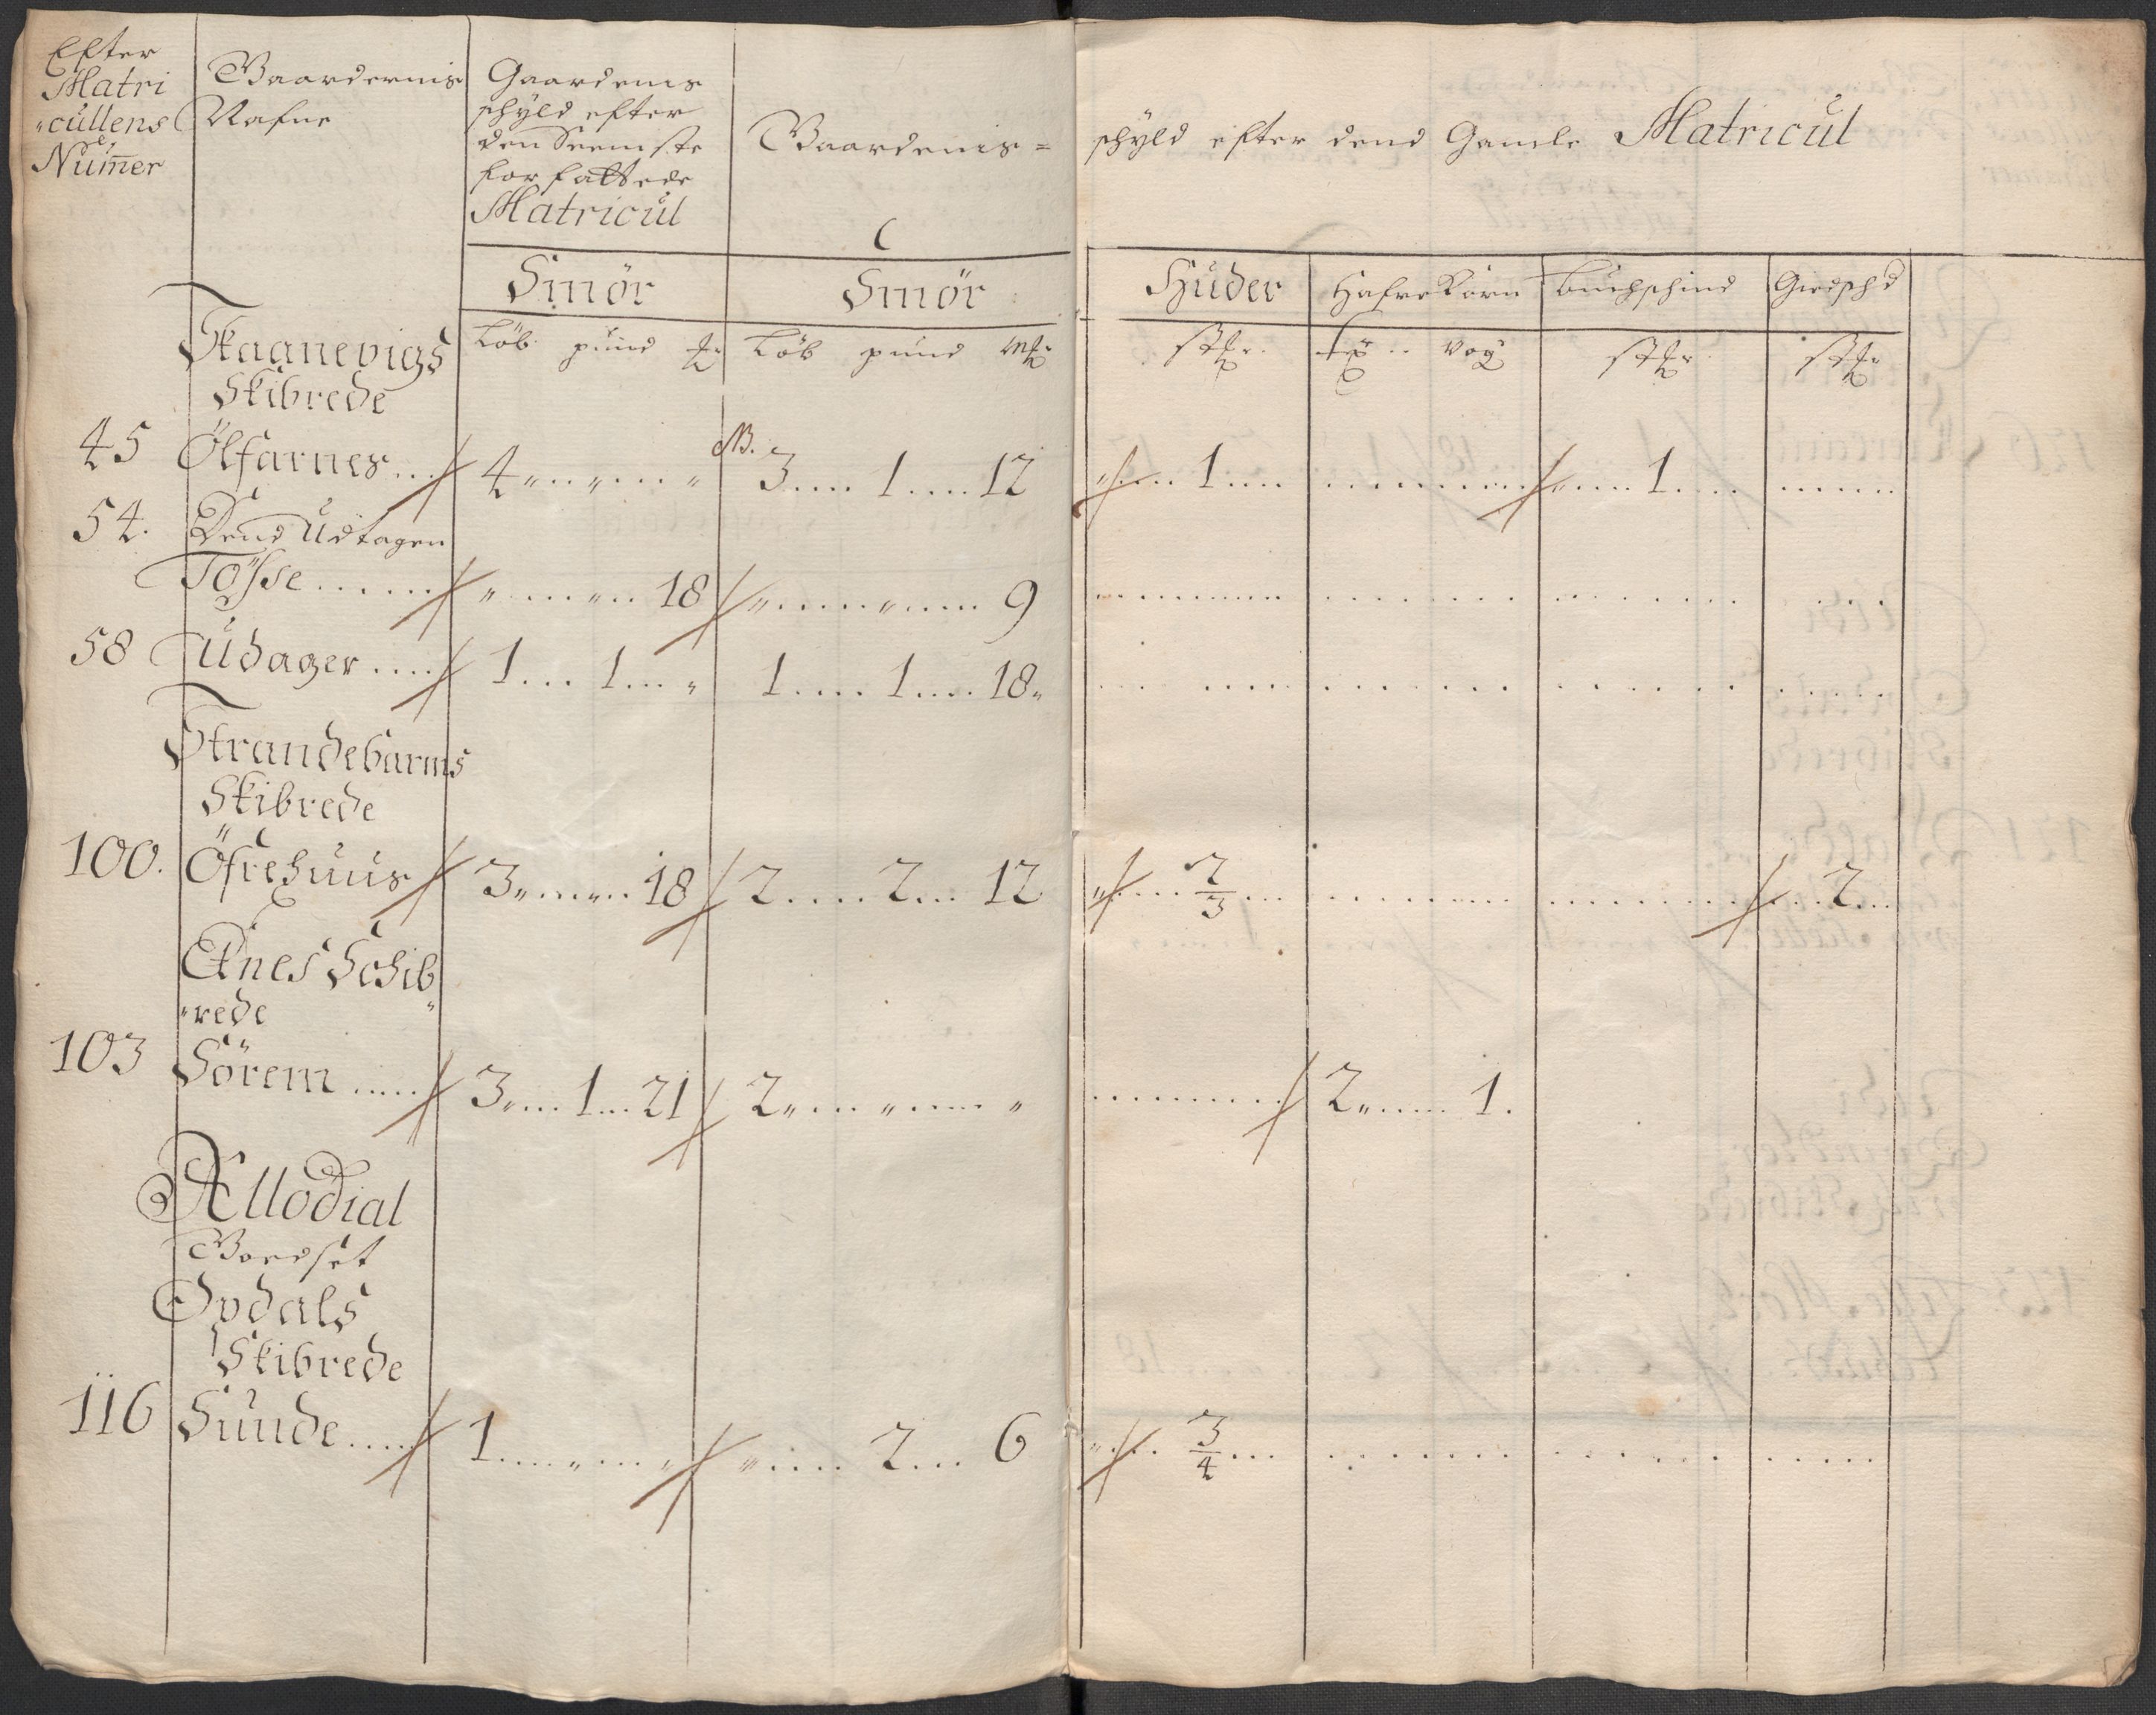 Efter
Matri
cullens
Numer
Gaardernis
Nafne
Gaardens
schyld efter
den Seemste
forfattede
Matricul
Gaardenis =
schyld efter dend Gamle Matricul
Smör
Smör
Huder
Hafre Korn
Buchschind
Giedschd
Löb pund
Löb pund
Vog
Skaanevigs
Skibrede
45 Ölfarnes 4 NB. 3 1 12 1 1
54. Dend Udtagen
Tösse 18 9
58 Udager 1 1 1 1 18
Strandebarms
Skibrede
100. Öfrehuus 3 18 2 2 12 2/3 2
Etnes Schib
rede
103 Sörem 3 1 21 2 2 1.
Allodial
Goedset
Opdals
Skibrede
116 Sunde 1 2 6 3/4